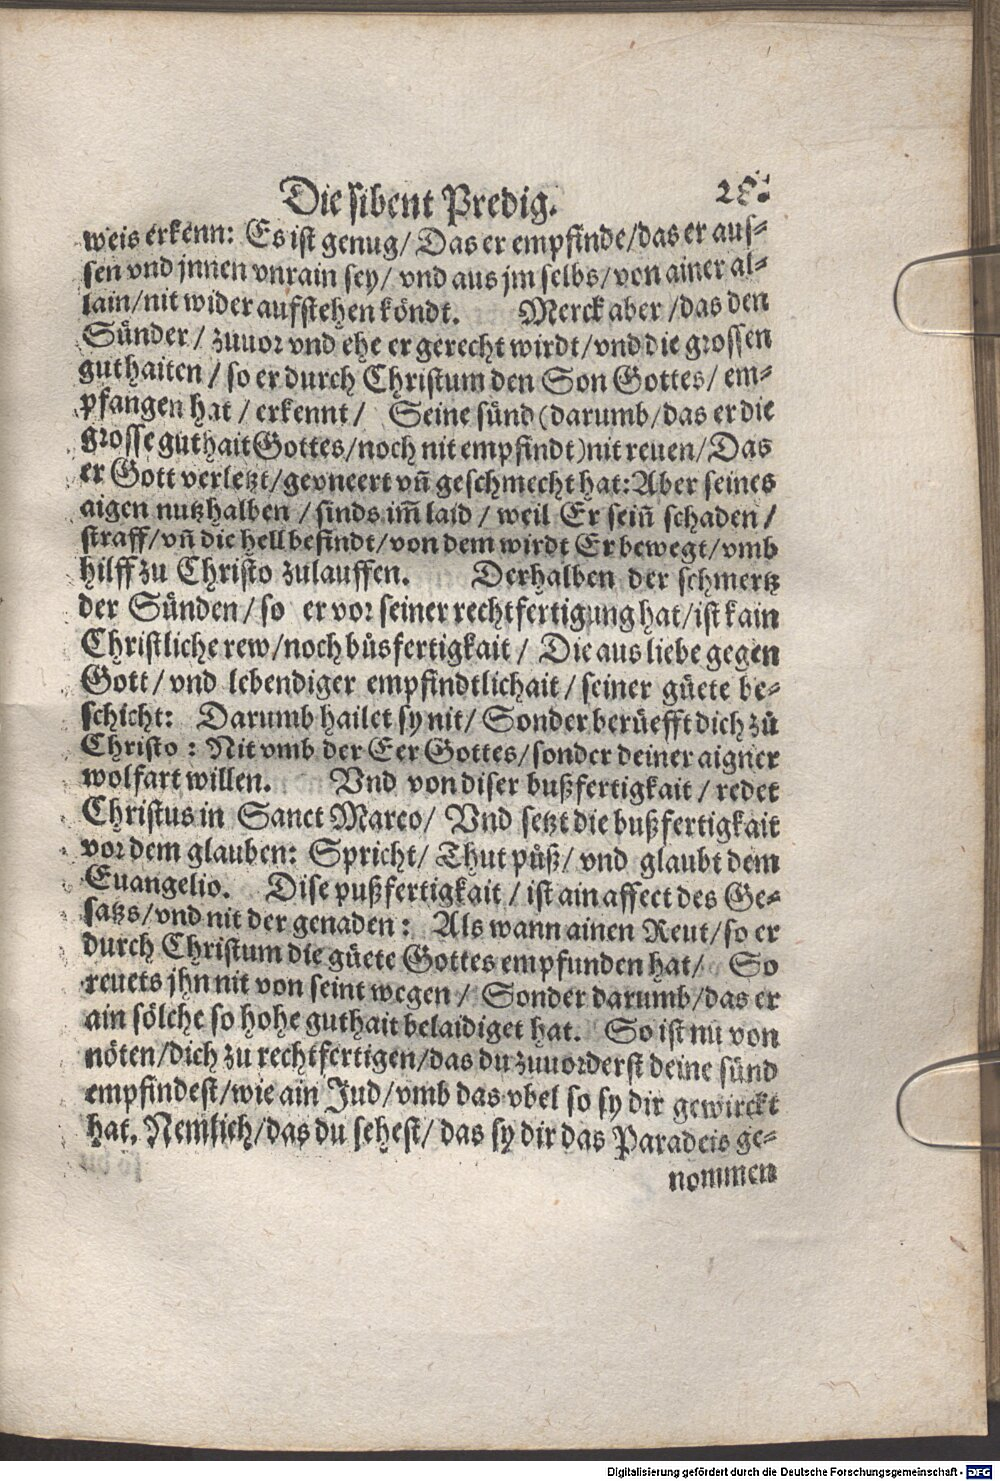 Die sibent Predig. 28.
weis erkenn: Es ist genug/ Das er empfinde/das er aus-
sen vnd jnnen vnrain sey/ vnd aus jm selbs/von ainer al-
lain/nit wider aufstehen köndt. Merck aber /das den
Sünder/ zuuor vnd ehe er gerecht wirdt/vnd die grossen
guthaiten / so er durch Christum den Son Gottes/ em-
pfangen hat / erkennt / Seine sünd (darumb/das er die
grosse guthait Gottes/noch nit empfindt) nit reuen/Das
er Gott verletzt/gevneert vñ geschmecht hat: Aber seines
aigen nutzhalben / sinds im̃ laid / weil Er sein̄ schaden /
straff/vñ die hell befindt/von dem wirdt Er bewegt/vmb
hilff zu Christo zulauffen. Derhalben der schmertz
der Sünden/so er vor seiner rechtfertigung hat/ist kain
Christliche rew/noch büsfertigkait / Die aus liebe gegen
Gott/vnd lebendiger empfindtlichait/seiner güete be-
schicht: Darumb hailet sy nit/ Sonder berüefft dich zů
Christo : Nit vmb der Eer Gottes/sonder deiner aigner
wolfart willen. Vnd von diser bußfertigkait / redet
Christus in Sanct Marco/ Vnd setzt die bußfertigkait
vor dem glauben: Spricht/ Thut půß/ vnd glaubt dem
Euangelio. Dise pußfertigkait / ist ain affect des Ge-
satzs/vnd nit der genaden : Als wann ainen Reut/so er
durch Christum die güete Gottes empfunden hat/ So
reuets jhn nit von seint wegen / Sonder darumb/das er
ain sölche so hohe guthait belaidiget hat. So ist nu von
nöten/dich zu rechtfertigen/das du zuuorderst deine sünd
empfindest/wie ain Jud/vmb das vbel so sy dir gewirckt
hat. Nemlich/das du sehest/ das sy dir das Paradeis ge-
nommen
Digitalisierung gefördert durch die Deutsche Forschungsgemeinschaft - DFG